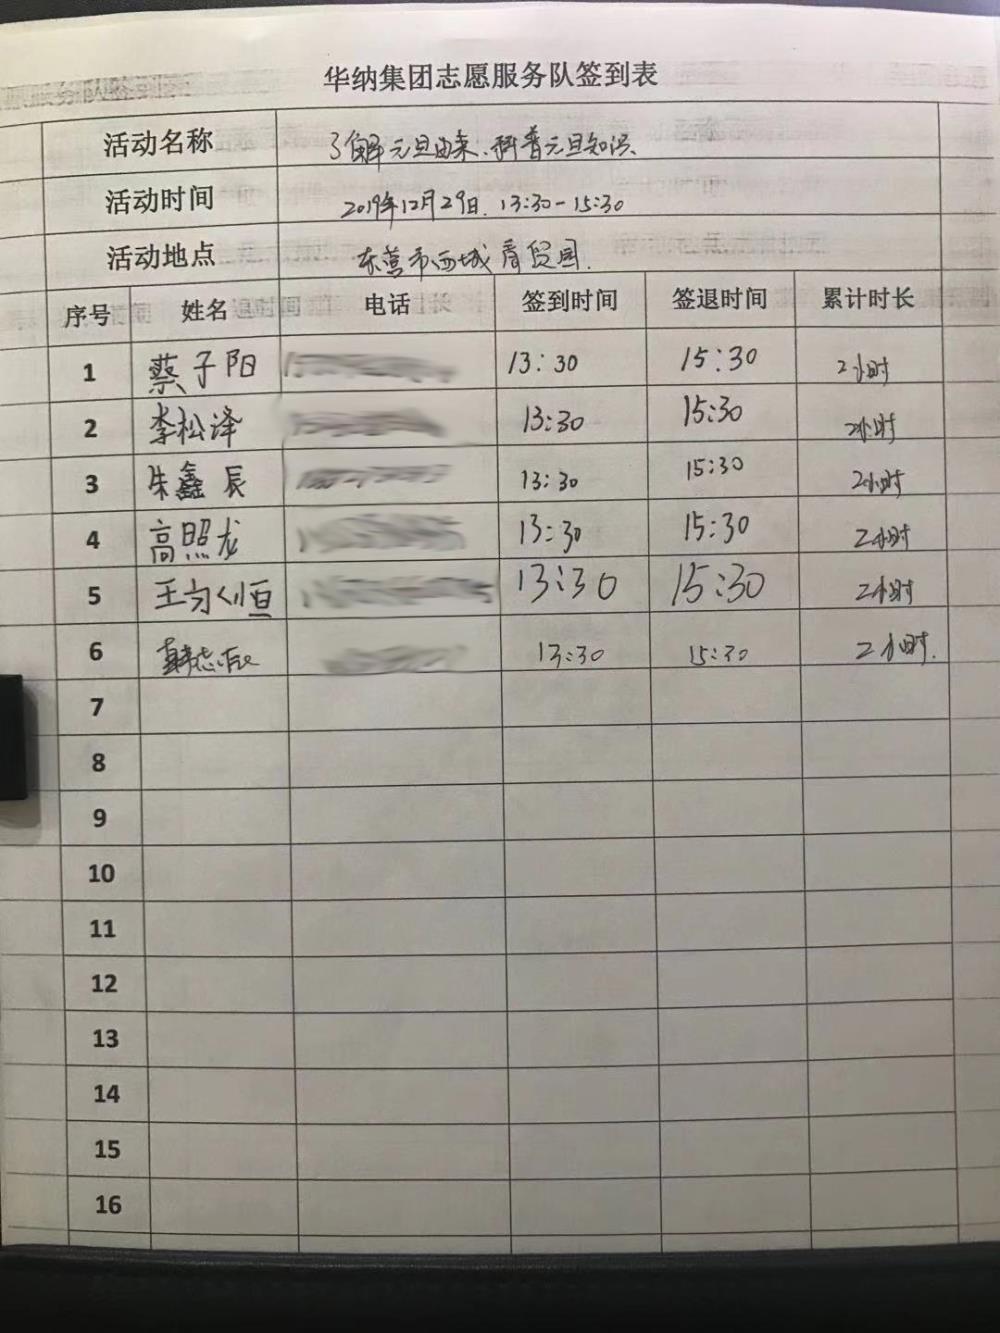 华纳集团志愿服务队签到表
活动名称 了解元旦由来、科普元旦知识
活动时间 2019年12月29日 13:30-15:30
活动地点 东营市西城商贸园
序号 姓名 电话 签到时间 签退时间 累计时长
1 蔡子阳 13:30 15:30 2小时
2 李松泽 13:30 15:30 2小时
3 朱鑫辰 13:30 15:30 2小时
4 高照龙 13:30 15:30 2小时
5 13:30 15:30 2小时
6 13:30 15:30 2小时
7
8
9
10
11
12
13
14
15
16